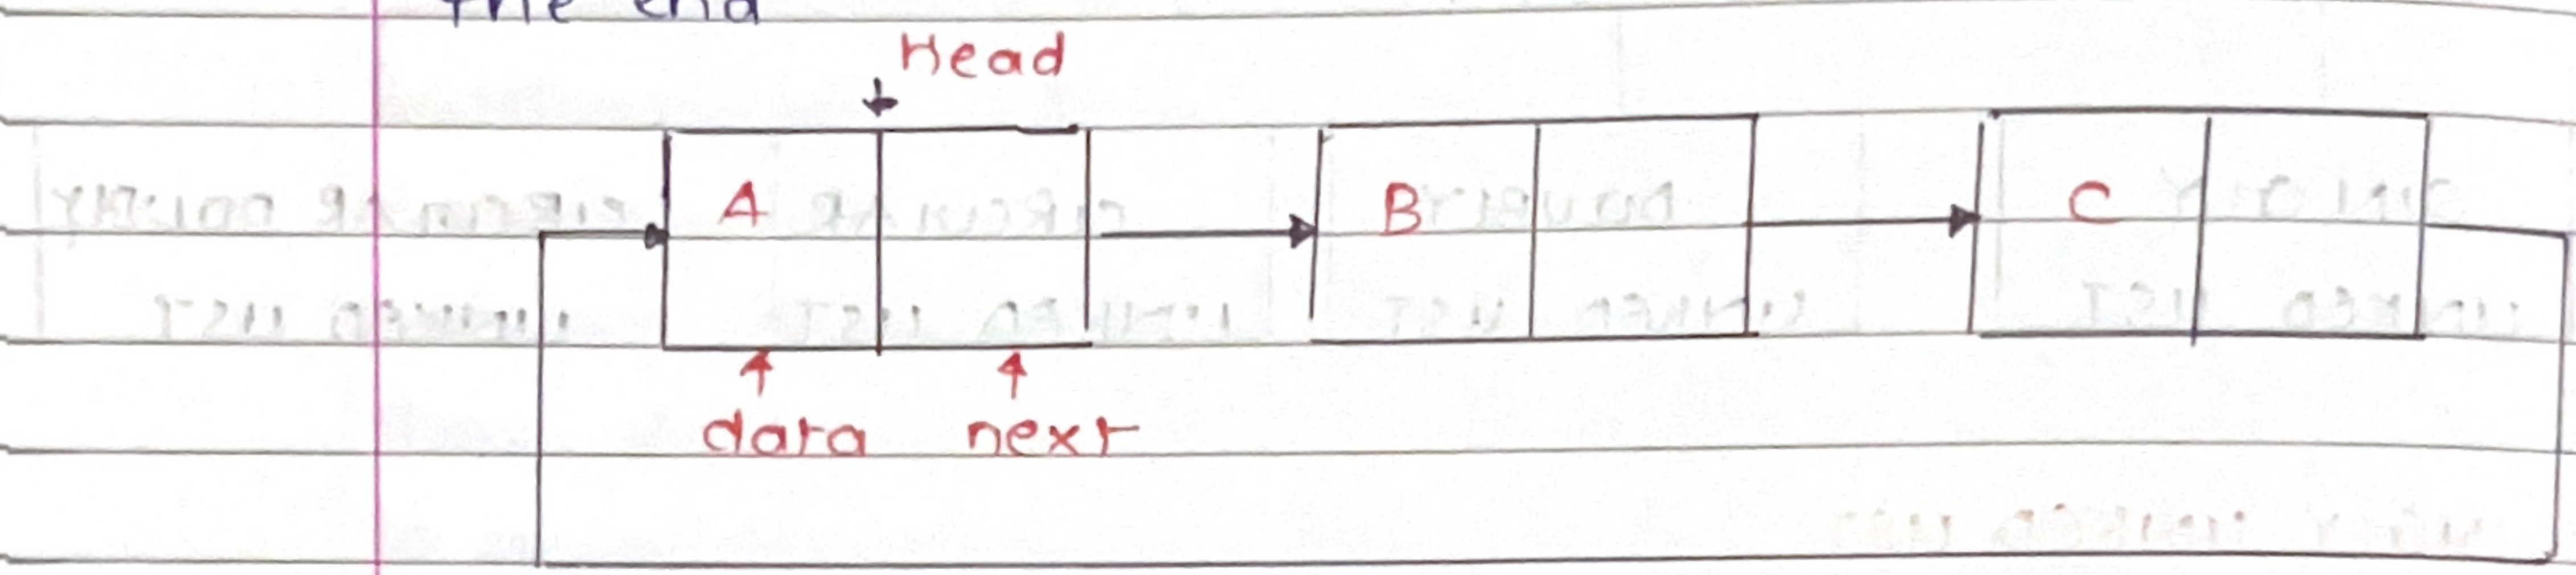 the end
Head
A B C
data next